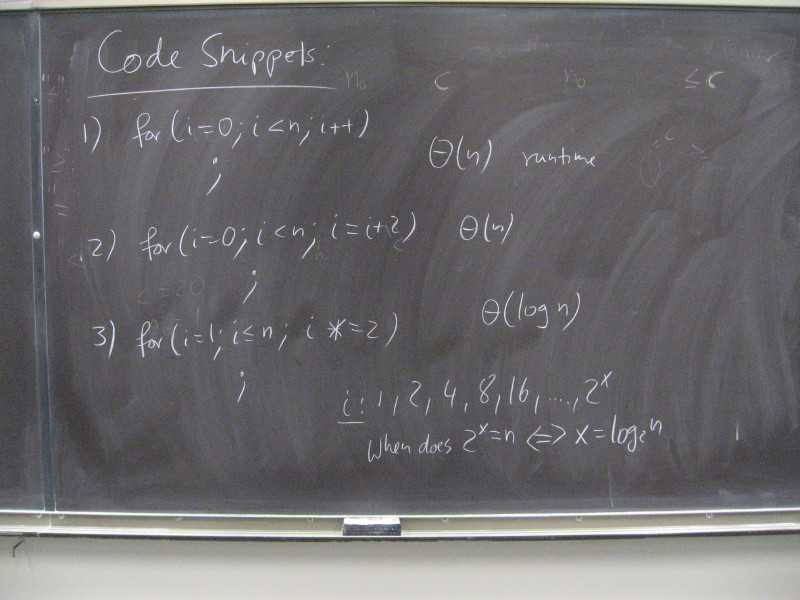 Code Snippets:
1) for (i=0; i<n; i++)
;
Θ(n) runtime
2) for (i=0; i<n; i=i+2) Θ(n)
;
3) for (i=1; i≤n; i *=2)
;
Θ(log n)
i: 1, 2, 4, 8, 16, ...., 2^x
When does 2^x=n ⇔ x=log₂n